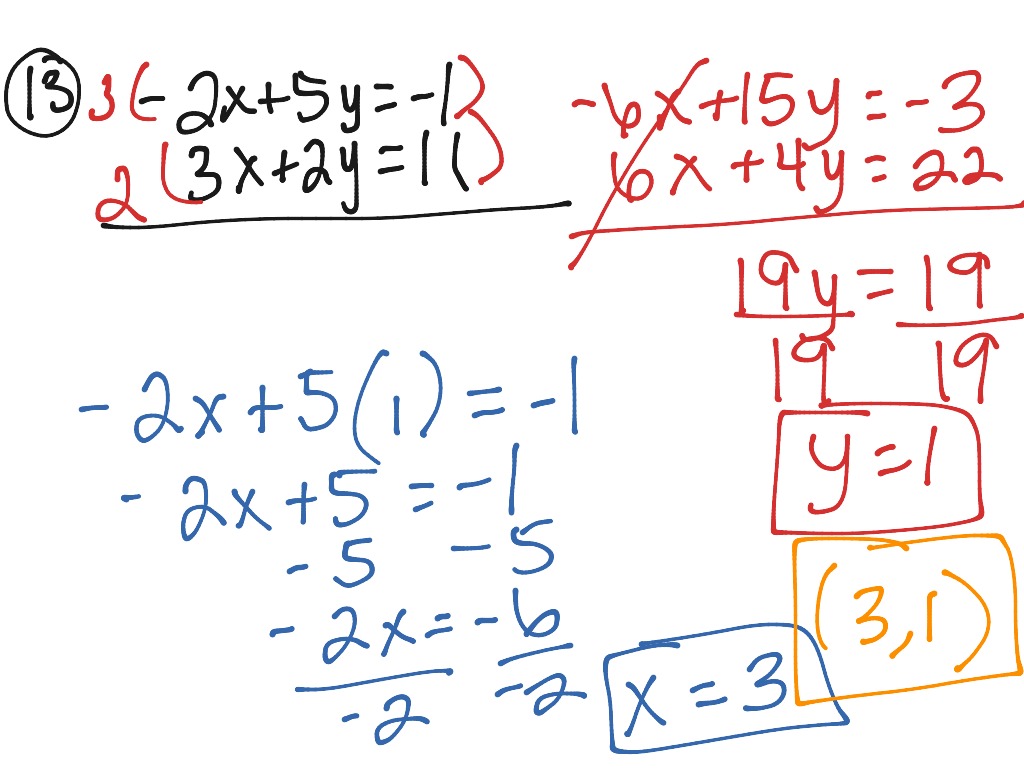 13 3(-2x+5y=-1)
2(3x+2y=11)
-6x+15y=-3
6x+4y=22
19y=19
19 19
y=1
-2x+5(1)=-1
-2x+5=-1
-5 -5
-2x=-6
-2 -2
x=3
(3,1)